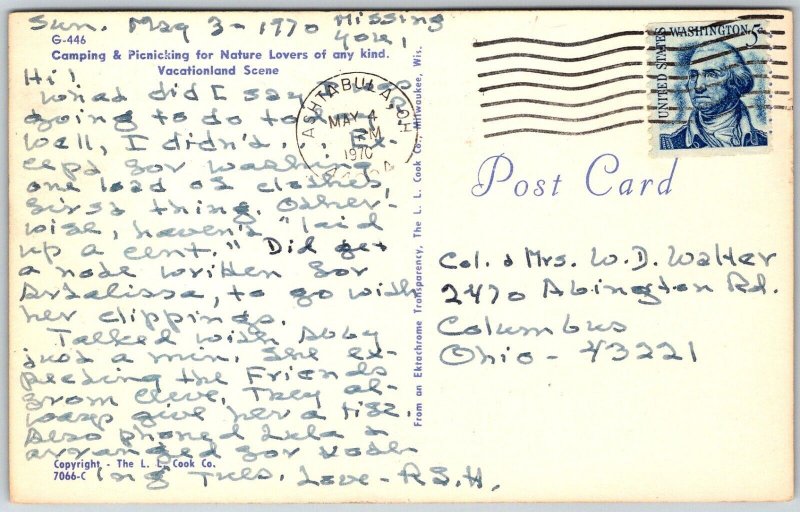 Sun. May 3 - 1970 Missing
you,
G-446
Camping & Picnicking for Nature Lovers of any kind.
Vacationland Scene
Hi!
What did I say
going to do to
Well, I didn't. Ex-
cept for washing
one load of clothes,
first thing. Other-
wise, haven't "laid
up a cent." Did get
a note written for
Ardalissa, to go with
her clippings.
Talked with Abby
just a min. She ex-
pecting the Friends
from Cleve. They al-
ways give her a lift.
Also phoned Lula &
arranged for
ing Tues. Love - R.S.H.
Copyright - The L. L. Cook Co.
7066-C
From an Ektachrome Transparency, The L. L. Cook Co., Milwaukee, Wis.
ASHTABULA, OH
MAY 4
PM
1970
UNITED STATES
WASHINGTON 5¢
Post Card
Col. & Mrs. W. D. Walter
2470 Abington Rd.
Columbus
Ohio - 43221